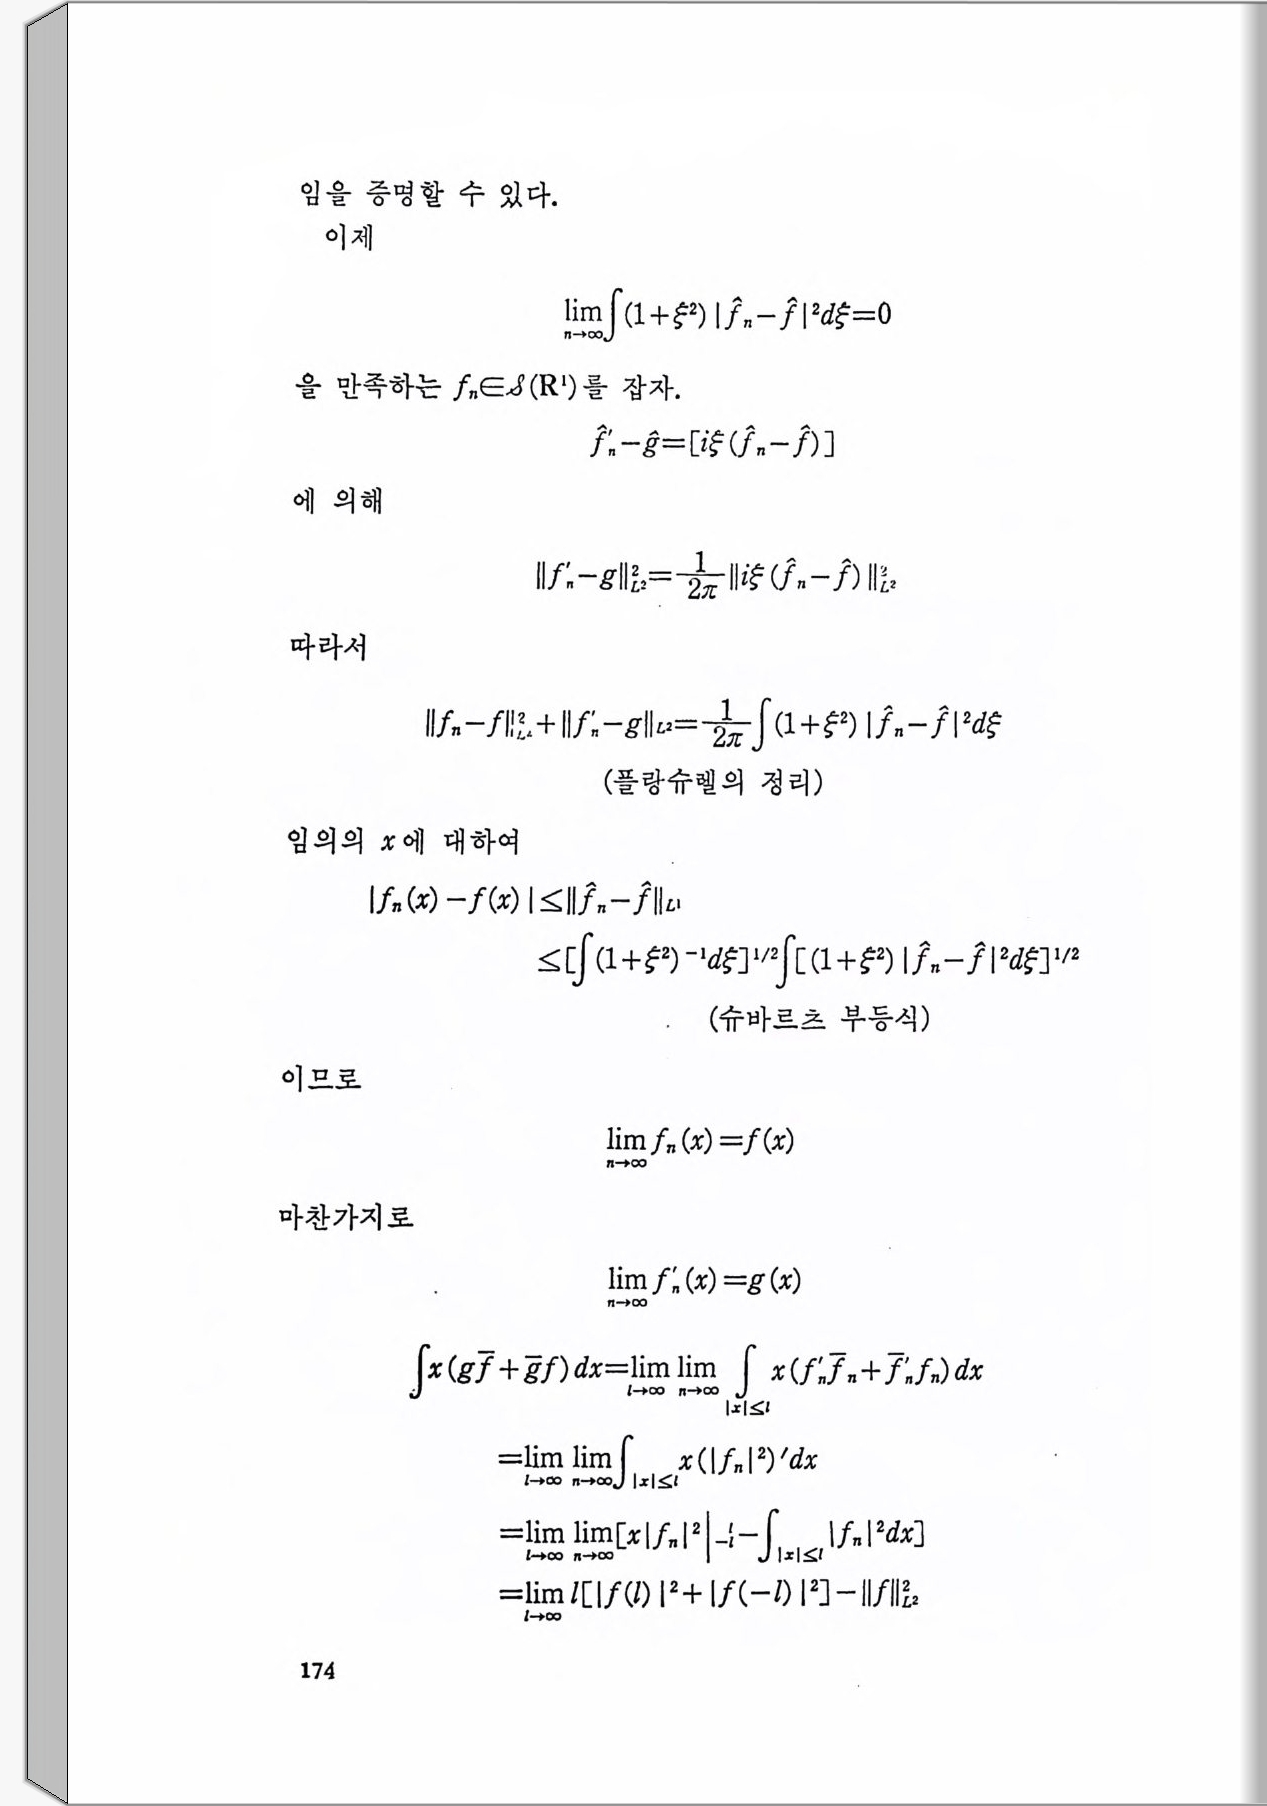 임을 증명할 수 있다.
이제
lim_{n→∞}∫(1+ξ²)|f̂ₙ−f̂|²dξ=0
을 만족하는 fₙ∈𝒮(R¹)를 잡자.
f̂′ₙ−ĝ=[iξ(f̂ₙ−f̂)]
에 의해
‖f′ₙ−g‖²_{L²}=1/2π‖iξ(f̂ₙ−f̂)‖²_{L²}
따라서
‖fₙ−f‖²_{L²}+‖f′ₙ−g‖_{L²}=1/2π∫(1+ξ²)|f̂ₙ−f̂|²dξ
(플랑슈렐의 정리)
임의의 x에 대하여
|fₙ(x)−f(x)|≤‖f̂ₙ−f̂‖_{L¹}
≤[∫(1+ξ²)⁻¹dξ]^{1/2}∫[(1+ξ²)|f̂ₙ−f̂|²dξ]^{1/2}
(슈바르츠 부등식)
이므로
lim_{n→∞} fₙ(x)=f(x)
마찬가지로
lim_{n→∞} f′ₙ(x)=g(x)
∫x(gf̄+ḡf)dx=lim_{l→∞} lim_{n→∞} ∫_{|x|≤l} x(f′ₙf̄ₙ+f̄′ₙfₙ)dx
=lim_{l→∞} lim_{n→∞}∫_{|x|≤l}x(|fₙ|²)′dx
=lim_{l→∞} lim_{n→∞}[x|fₙ|²|_{-l}^{l}−∫_{|x|≤l}|fₙ|²dx]
=lim_{l→∞} l[|f(l)|²+|f(−l)|²]−‖f‖²_{L²}
174